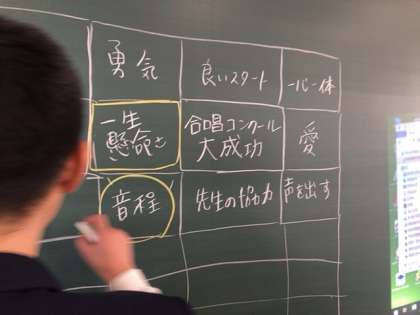 勇気
良いスタート
一心一体
一生
懸命さ
合唱コンクール
大成功
愛
音程
先生の協力
声を出す